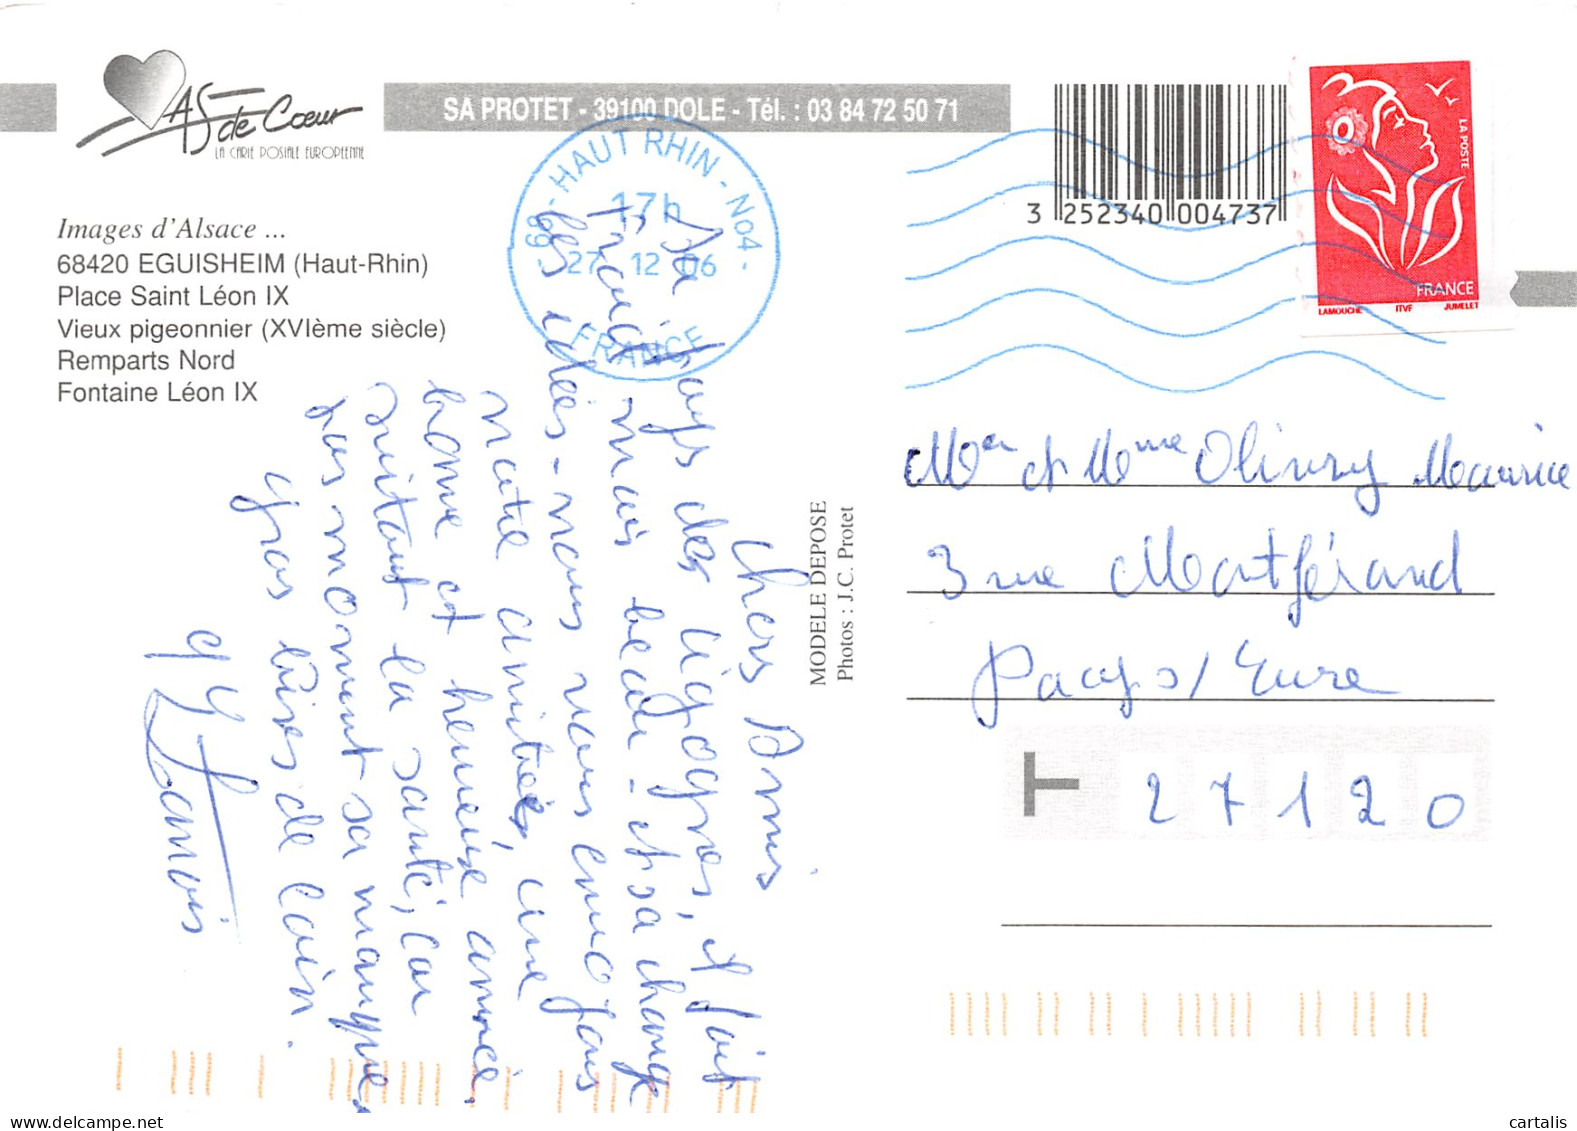 As de Cœur
LA CARTE POSTALE EUROPEENNE
SA PROTET - 39100 DOLE - Tél. : 03 84 72 50 71
Images d'Alsace ...
68420 EGUISHEIM (Haut-Rhin)
Place Saint Léon IX
Vieux pigeonnier (XVIème siècle)
Remparts Nord
Fontaine Léon IX
68 - HAUT RHIN - No4 -
17h
27 12 06
FRANCE
3 252340 004737
LA POSTE
FRANCE
LAMOUCHE ITVF JUMELET
Chers Amis
Au Pays des cigognes, il fait
froid mais beau - et sa change
les idées - nous vous envoyons
notre amitiés, une
bonne et heureuse année.
suitant la santé, car
pas moment sa manque
gros bises de loin.
MODELE DEPOSE
Photos : J.C. Protet
Mer et Mme Olivry Maurice
3 rue Montférand
Pacy s/ Eure
T 27120
cartalis